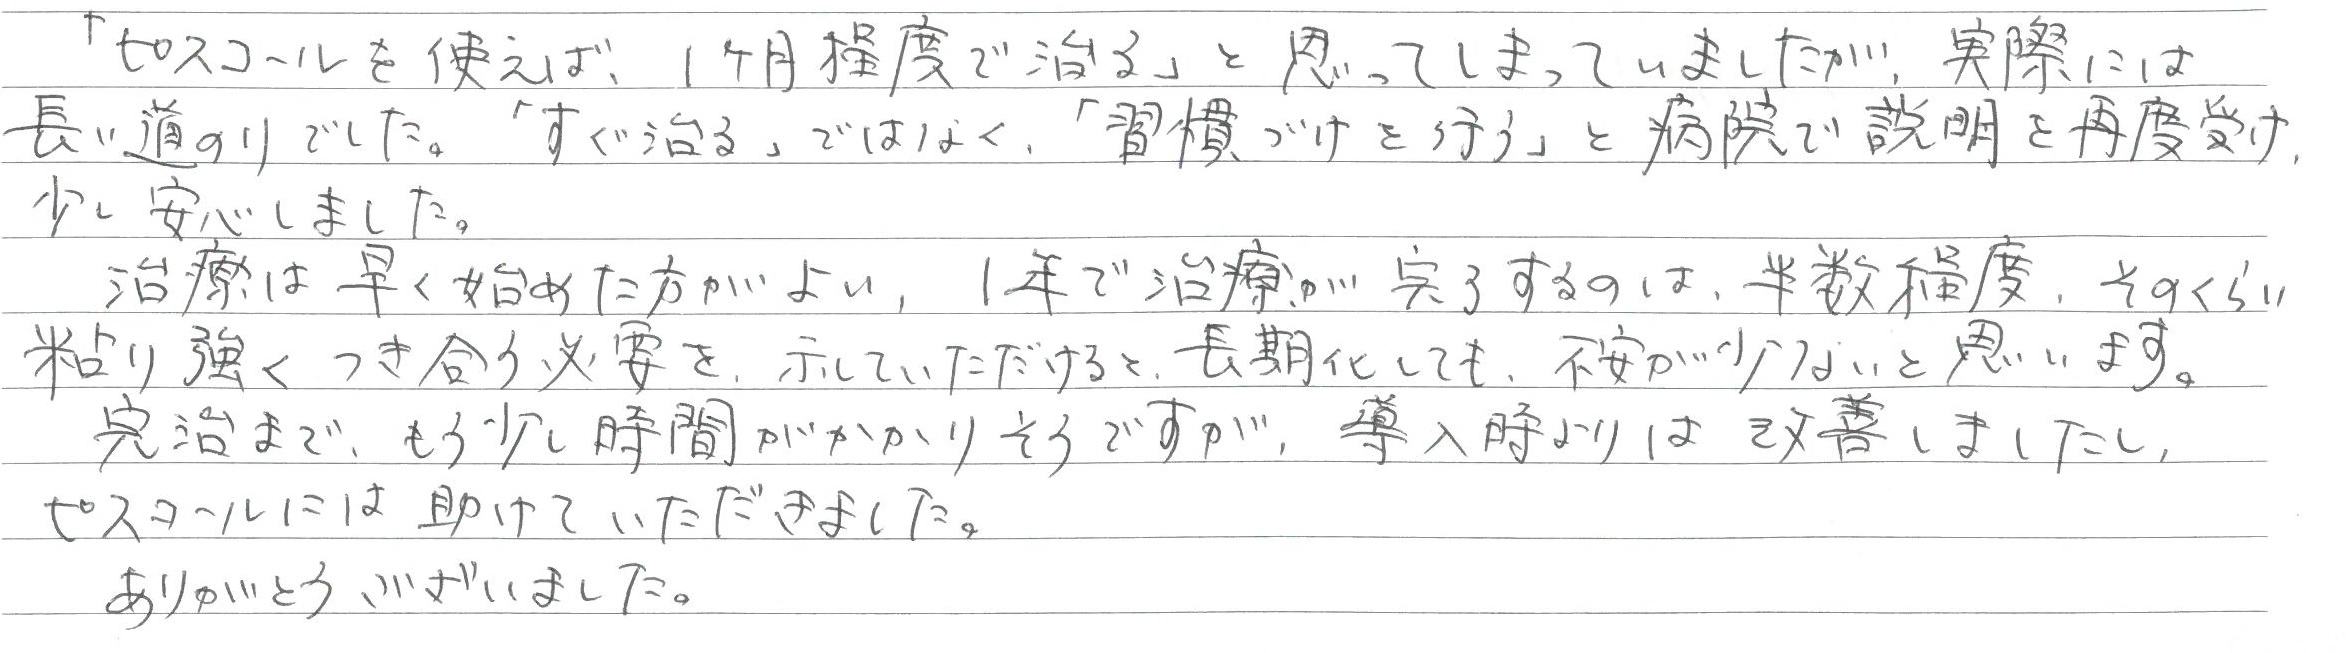 「ピスコールを使えば、1ケ月程度で治る」と思ってしまっていましたが、実際には
長い道のりでした。「すぐ治る」ではなく、「習慣づけを行う」と病院で説明を再度受け、
少し安心しました。
治療は早く始めた方がよい、1年で治療が完了するのは、半数程度、そのくらい
粘り強くつき合う必要を、示していただけると、長期化しても、不安が少ないと思います。
完治まで、もう少し時間がかかりそうですが、導入時よりは改善しましたし、
ピスコールには助けていただきました。
ありがとうございました。